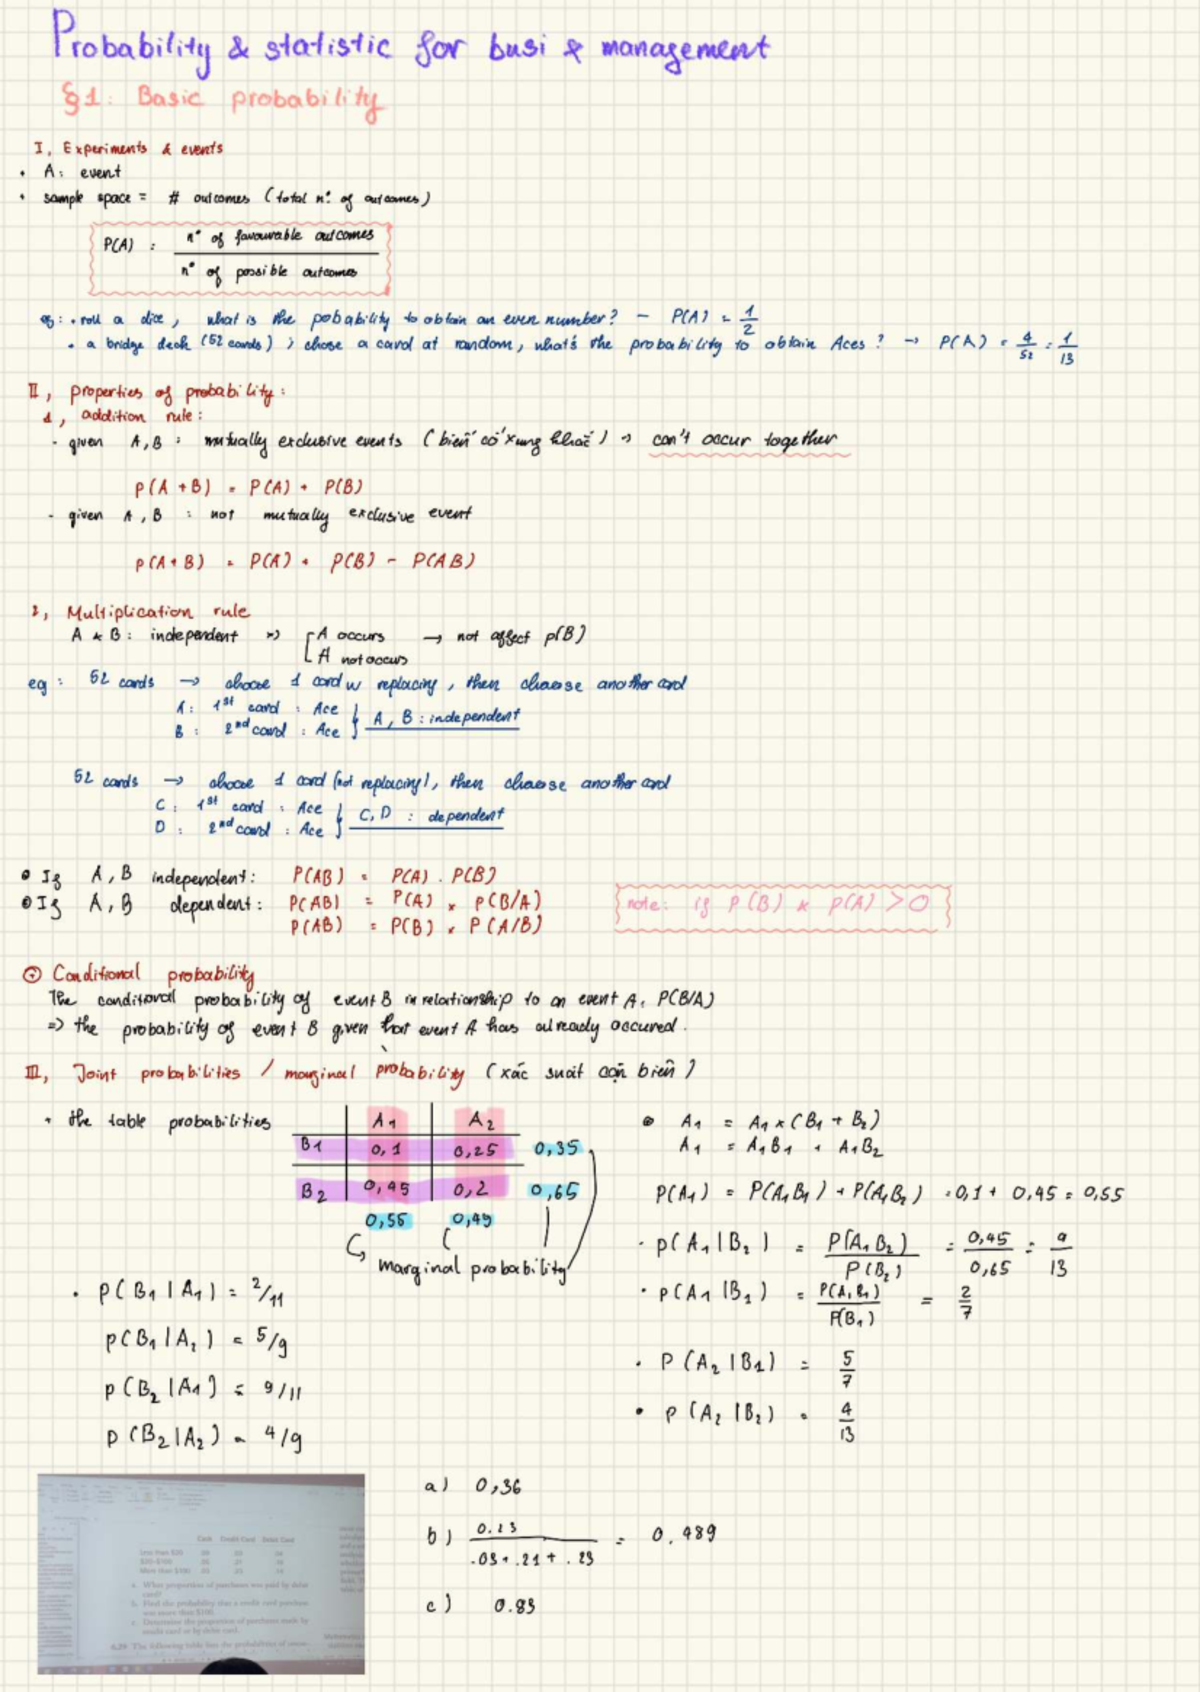 Probability & statistic for busi & management
§1: Basic probability
I, Experiments & events
• A: event
• sample space = # outcomes (total n° of outcomes)
P(A) = n° of favourable outcomes / n° of possible outcomes
eg: • roll a dice, what is the pobability to obtain an even number? - P(A) = 1/2
• a bridge deck (52 cards); chose a card at random, what's the probability to obtain Aces? → P(A) = 4/52 = 1/13
II, properties of probability:
1, addition rule:
- given A, B : mutually exclusive events (biến cố xung khắc) → can't occur together
P(A + B) = P(A) + P(B)
- given A, B : not mutually exclusive event
P(A + B) = P(A) + P(B) - P(AB)
2, Multiplication rule
A & B: independent => [ A occurs → not affect p(B)
A not occurs
eg: 52 cards → choose 1 card w replacing, then choose another card
A: 1st card : Ace
B: 2nd card : Ace } A, B: independent
52 cards → choose 1 card (not replacing), then choose another card
C: 1st card : Ace
D: 2nd card : Ace } C, D : dependent
• If A, B independent: P(AB) = P(A) . P(B)
• If A, B dependent: P(AB) = P(A) × P(B/A)
P(AB) = P(B) × P(A/B)
note: if P(B) & P(A) > 0
Conditional probability
The conditional probability of event B in relationship to an event A: P(B/A)
=> the probability of event B given that event A has already occured.
III, Joint probabilities / marginal probability (xác suất cận biên)
• the table probabilities
A1 A2
B1 0,1 0,25 0,35
B2 0,45 0,2 0,65
0,55 0,45
marginal probability
• A1 = A1 × (B1 + B2)
A1 = A1B1 + A1B2
P(A1) = P(A1B1) + P(A1B2) = 0,1 + 0,45 = 0,55
• P(A1|B2) = P(A1B2) / P(B2) = 0,45 / 0,65 = 9/13
• P(A1|B1) = P(A1B1) / P(B1) = 2/7
• P(A2|B1) = 5/7
• P(A2|B2) = 4/13
• P(B1|A1) = 2/11
P(B1|A2) = 5/9
P(B2|A1) = 9/11
P(B2|A2) = 4/9
Cash Credit Card Debit Card
Less than $20
$20-$100
More than $100
a. What proportion of purchases was paid by debit
card?
b. Find the probability that a credit card purchase
was more than $100.
c. Determine the proportion of purchases made by
credit card or by debit card.
The following table lists the probabilities of
a) 0,36
b) 0.23 / .03 + .21 + .23 = 0.489
c) 0.83